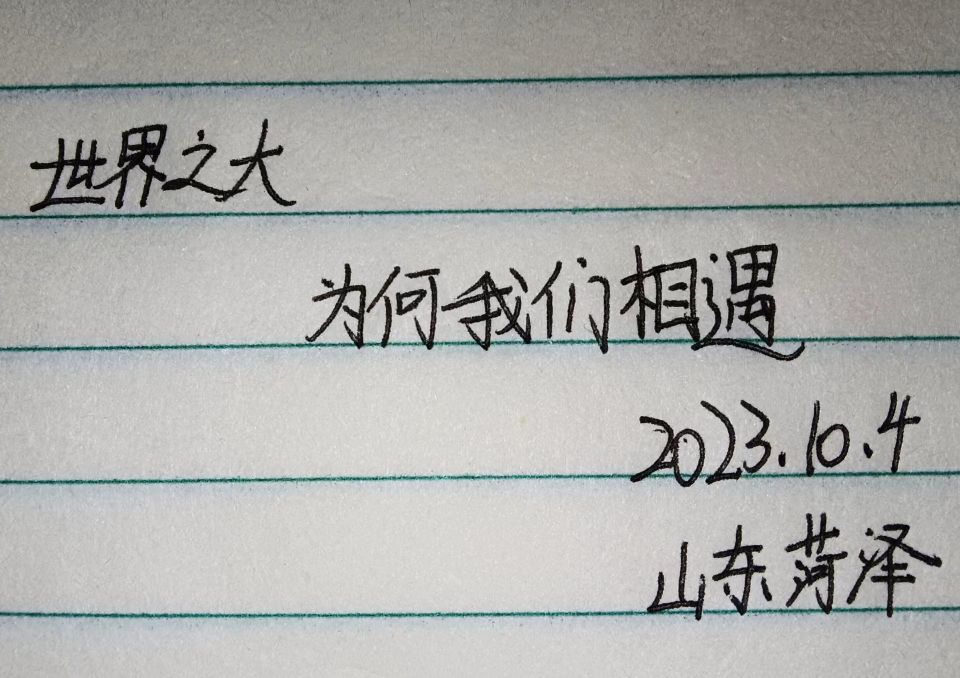 世界之大
为何我们相遇
2023.10.4
山东菏泽